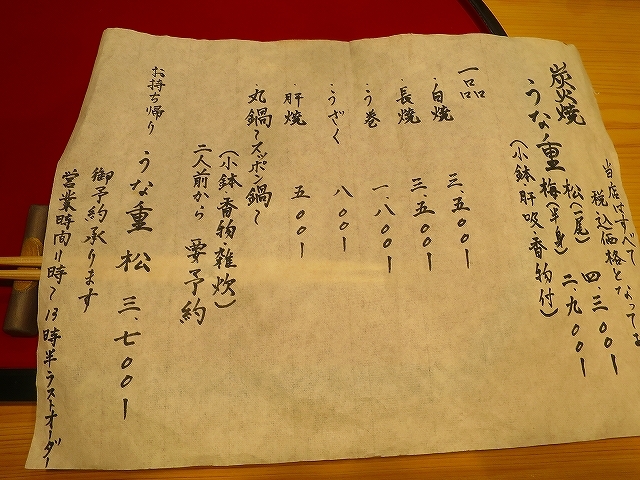 当店はすべて
税込価格となってお
炭火焼
うな重 松(一尾) 四、三〇〇ー
梅(半身) 二、九〇〇ー
(小鉢・肝吸・香物付)
一品
・白焼 三、五〇〇ー
・長焼 三、五〇〇ー
・う巻 一、八〇〇ー
・うざく 八〇〇ー
肝焼 五〇〇ー
・丸鍋〜スッポン鍋〜
(小鉢・香物・雑炊)
二人前から 要予約
お持ち帰り
うな重 松 三、七〇〇ー
御予約承ります
営業時間11時〜13時半ラストオーダー